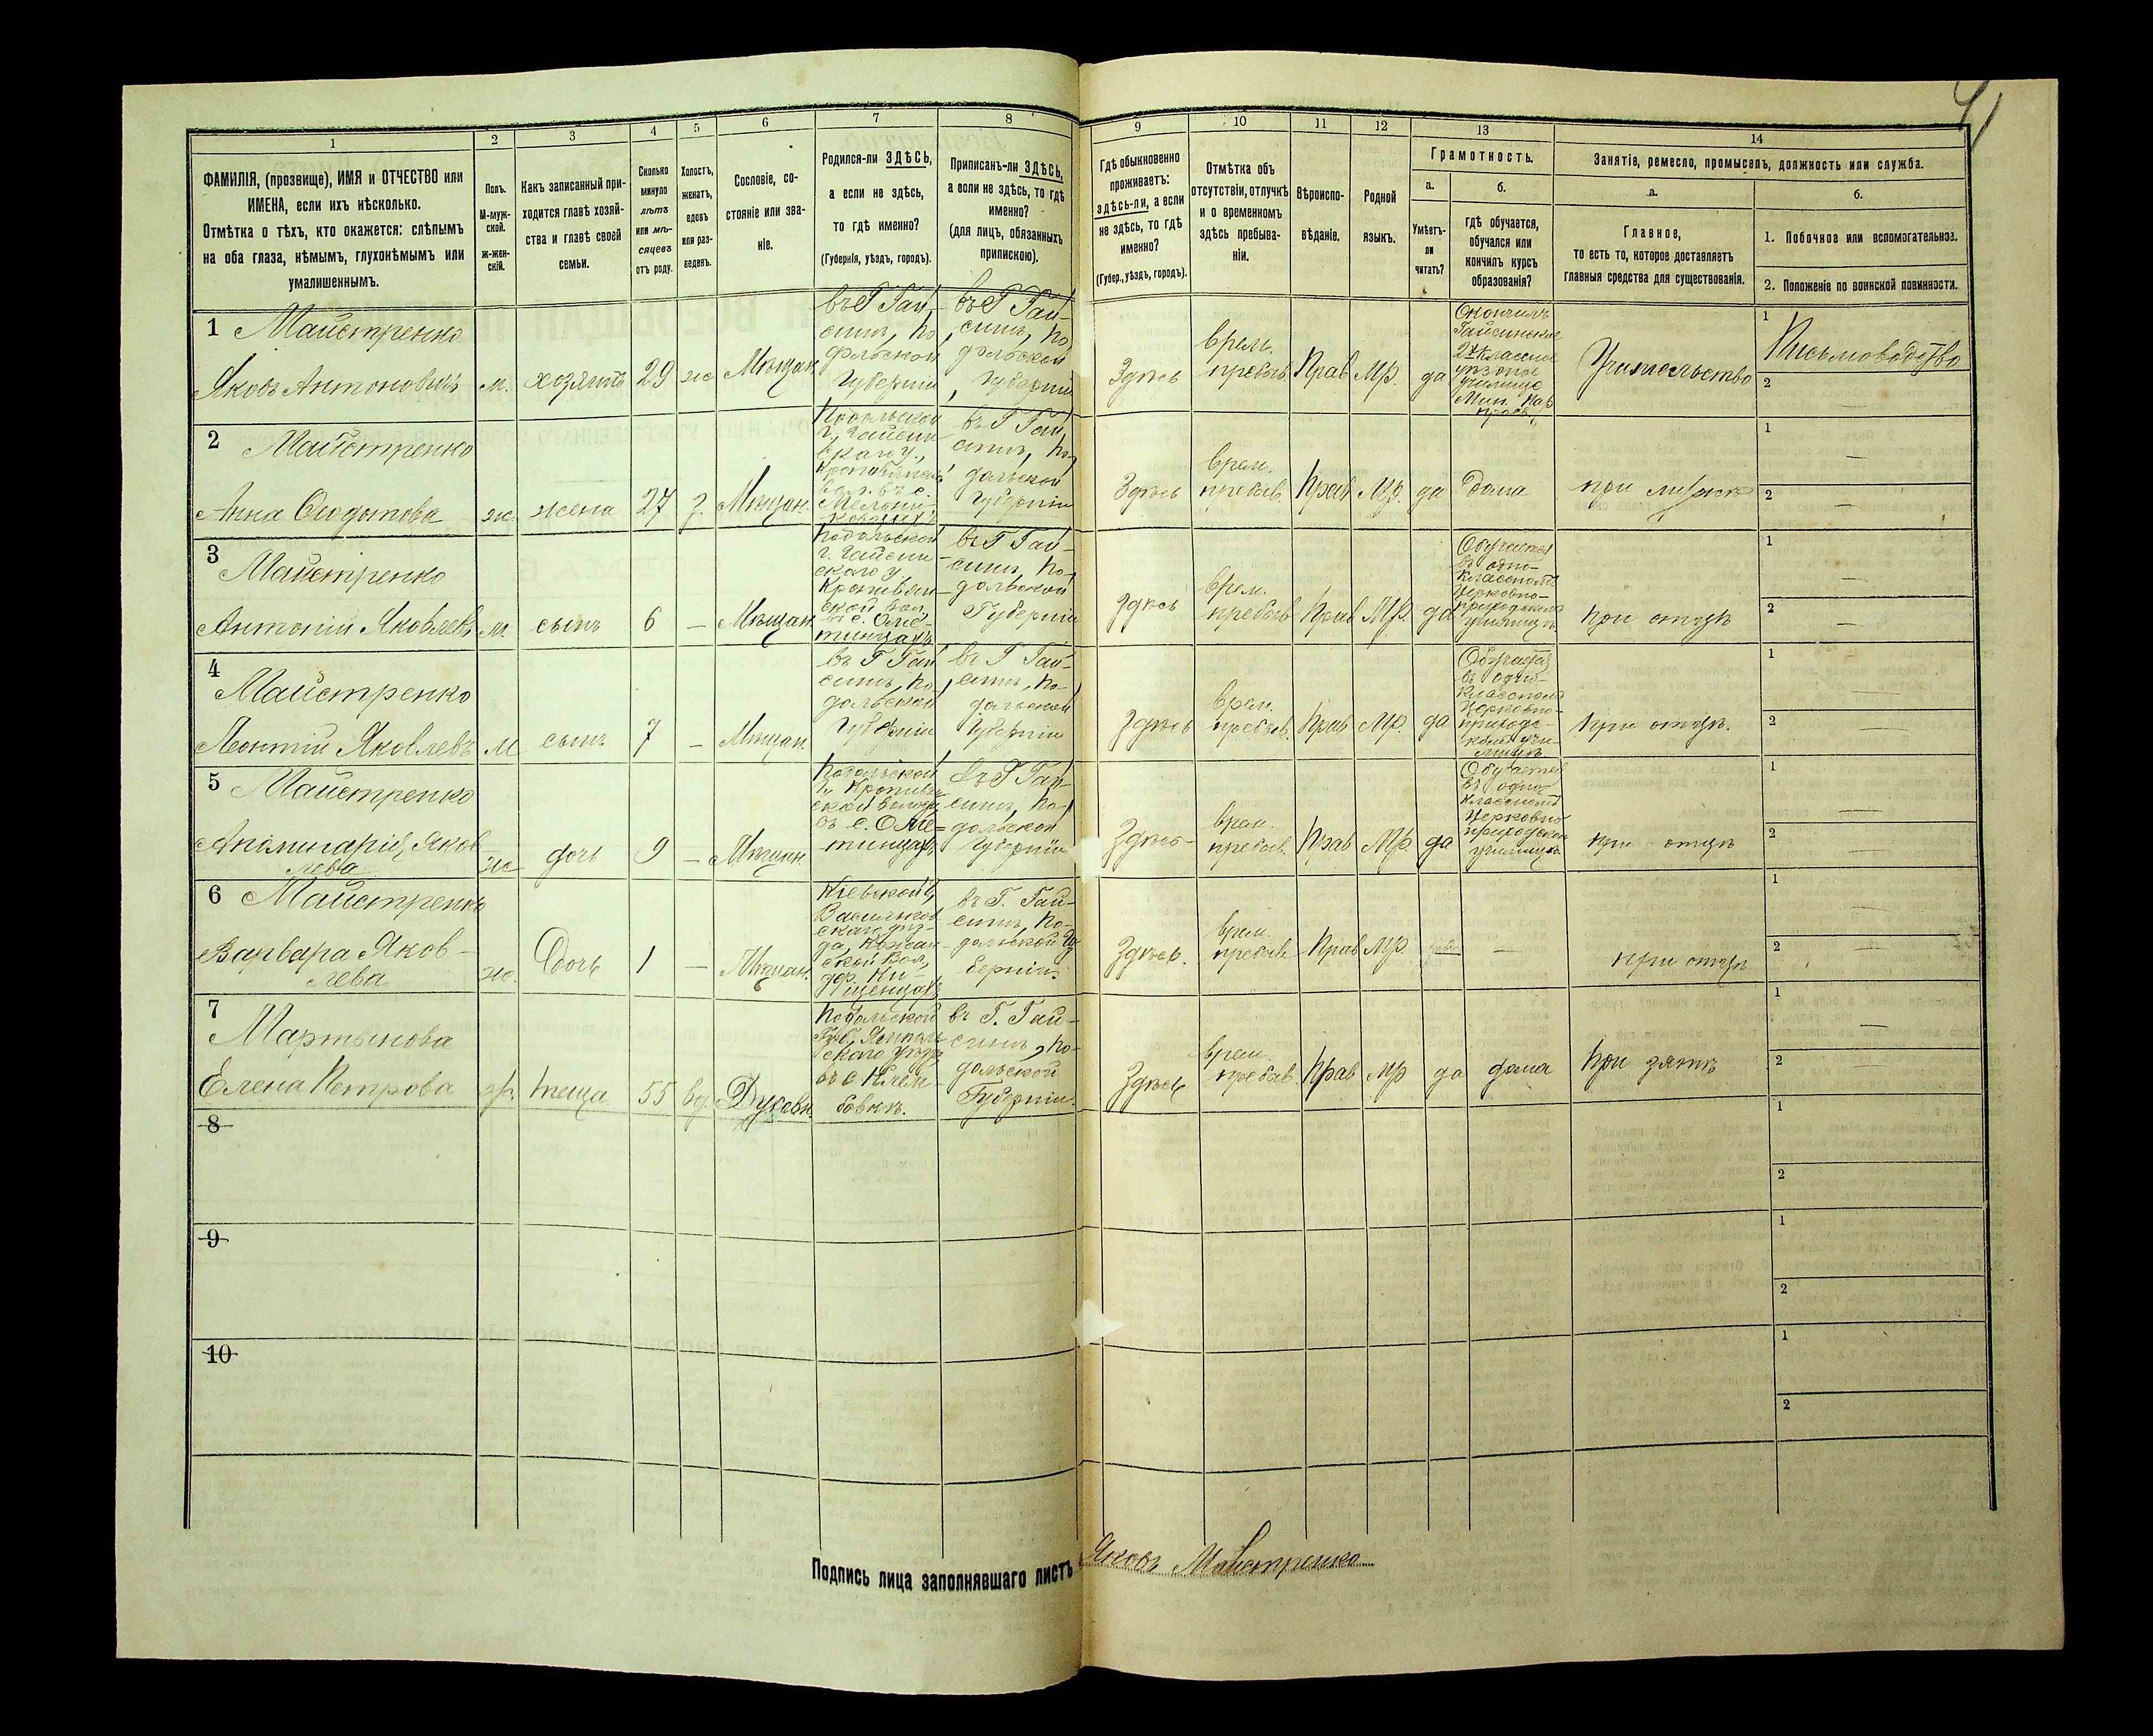 1
2
3
4
5
6
7
8
9
10
11
12
13
14
ФАМИЛІЯ, (прозвище), ИМЯ и ОТЧЕСТВО или
ИМЕНА, если ихъ нѣсколько.
Отмѣтка о тѣхъ, кто окажется: слѣпымъ
на оба глаза, нѣмымъ, глухонѣмымъ или
умалишеннымъ.
Полъ.
М-муж-
ской.
ж-жен-
скій.
Какъ записанный при-
ходится главѣ хозяй-
ства и главѣ своей
семьи.
Сколько
минуло
лѣтъ
или мѣ-
сяцевъ
отъ роду.
Холостъ,
женатъ,
вдовъ
или раз-
веденъ.
Сословіе, со-
стояніе или зва-
ніе.
Родился-ли ЗДѢСЬ,
а если не здѣсь,
то гдѣ именно?
(Губернія, уѣздъ, городъ).
Приписанъ-ли ЗДѢСЬ,
а если не здѣсь, то гдѣ
именно?
(для лицъ, обязанныхъ
припискою).
Гдѣ обыкновенно
проживаетъ:
здѣсь-ли, а если
не здѣсь, то гдѣ
именно?
(Губер., уѣздъ, городъ).
Отмѣтка объ
отсутствіи, отлучкѣ
и о временномъ
здѣсь пребыва-
ніи.
Вѣроиспо-
вѣданіе.
Родной
языкъ.
Грамотность.
а.
Умѣетъ-
ли
читать?
б.
гдѣ обучается,
обучался или
кончилъ курсъ
образованія?
Занятіе, ремесло, промыселъ, должность или служба.
а.
Главное,
то есть то, которое доставляетъ
главныя средства для существованія.
б.
1. Побочное или вспомогательное.
2. Положеніе по воинской повинности.
1 Майстренко
Яковъ Антоновичъ
м.
хозяинъ
29
ж
Мѣщан.
въ Г Гай-
синѣ, По-
дольской
Губерніи
въ Г Гай-
синѣ, По-
дольской
Губерніи
Здѣсь
врем.
пребыв.
Прав
Мр.
да
Окончилъ
Гайсинское
2х классное
уѣздное
училище
Мин. Нар
Просв.
Учительство
1
Письмоводство
2
2 Майстренко
Анна Ѳеодотова
ж
жена
27
з.
Мѣщан.
Подольской
г., Гайсин
скаго у.,
въ Г Гай
синѣ, По-
дольской
Губерніи
Здѣсь
врем.
пребыв.
Прав
Мр.
да
Дома
при мужѣ
1
2
3
Майстренко
Антоній Яковлевъ
м.
сынъ
6
Мѣщан.
Подольской
г. Гайсин
скаго у
Кропивян-
ской вол,
въ с. Оме-
тинцахъ
въ Г Гай-
синѣ, По-
дольской
Губерніи
Здѣсь
врем.
пребыв
Прав
Мр.
да
Обучается
въ одно-
классномъ
Церковно-
приходскомъ
училищѣ
при отцѣ
1
2
4
Майстренко
Леонтій Яковлевъ
м
сынъ
7
Мѣщан.
въ Г Гай
синѣ, По-
дольской
Губерніи
въ Г Гай-
синѣ, По-
дольской
Губерніи
Здѣсь
врем.
пребыв.
Прав
Мр.
да
Обучается
въ одно-
классномъ
Церковно-
приходс-
комъ учи-
лищѣ
при отцѣ.
1
2
5 Майстренко
Яков
лева
ж
дочь
9
Мѣщан.
Подольской
г., Кропивян
ской волос
въ с. Оме-
тинцахъ
въ Г Гай-
синѣ, По-
дольской
Губерніи
Здѣсь
врем.
пребыв.
Прав
Мр.
да
Обучается
въ одно
классномъ
Церковно
приходском
училищѣ
при отцѣ
1
2
6 Майстренко
Варвара Яков-
лева
ж.
Дочь
1
Мѣщан.
Кіевской г,
Васильков
скаго уѣз-
да, Кожан-
ской Вол,
въ Г. Гай-
синѣ, По-
дольской Гу
берніи.
Здѣсь.
врем.
пребыв
Прав
Мр.
при отцѣ
1
2
7
Мартынова
Елена Петрова
ж.
теща
55
вд.
Духовн
Подольской
Губ, Ямполь
скаго уѣзда
въ с Клем-
бовкѣ.
въ Г. Гай-
синѣ, По-
дольской
Губерніи.
Здѣсь
врем.
пребыв.
Прав
Мр
да
дома
при зятѣ
1
2
8
1
2
9
1
2
10
1
2
Подпись лица заполнявшаго листъ Яковъ Майстренко